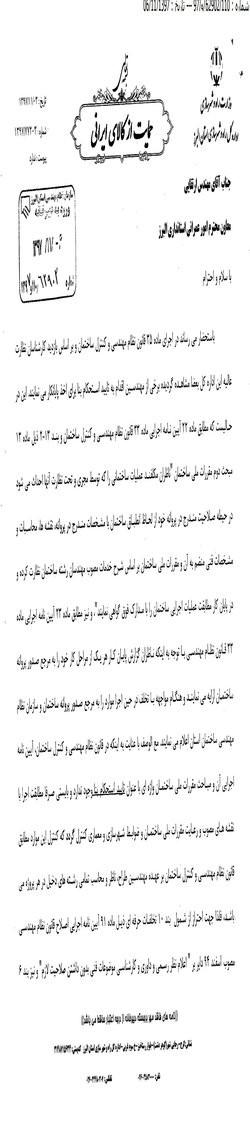 شماره : 97/ه/62902/110 — تاریخ : 06/11/1397
حمایت از کالای ایرانی
وزارت راه و شهرسازی
اداره کل راه و شهرسازی استان البرز
تاریخ: ۱۳۹۷/۱۱/۰۳
پیوست: ندارد
جناب آقای مهندس ارتقایی
معاون محترم امور عمرانی استانداری البرز
با سلام و احترام
باستحضار می رساند در اجرای ماده ۳۵ قانون نظام مهندسی و کنترل ساختمان و بر اساس بازدید کارشناسان نظارت
عالیه این اداره کل بعضا مشاهده گردیده برخی از مهندسین اقدام به تایید استحکام بنا برای اخذ پایانکار می نمایند. این در
حالیست که مطابق ماده ۲۲ آیین نامه اجرایی ماده ۳۳ قانون نظام مهندسی و کنترل ساختمان و بند ۲-۱۳ ذیل ماده ۱۳
مبحث دوم مقررات ملی ساختمان "ناظران مکلفند عملیات ساختمانی را که توسط مجری و تحت نظارت آنها احداث می شود
در حیطه صلاحیت مندرج در پروانه خود از لحاظ انطباق ساختمان با مشخصات مندرج در پروانه، نقشه ها، محاسبات و
مشخصات فنی منضم به آن و مقررات ملی ساختمان بر اساس شرح خدمات مصوب مهندسان رشته ساختمان نظارت کرده و
در پایان کار مطابقت عملیات اجرایی ساختمان را با مدارک فوق گواهی نمایند" و نیز مطابق ماده ۲۳ آیین نامه اجرایی ماده
۳۳ قانون نظام مهندسی با توجه به اینکه ناظران گزارش پایان کار هر یک از مراحل کار خود را به مرجع صدور پروانه
ساختمان ارایه می نمایند و هنگام مواجهه با تخلف در حین اجرا موارد را به مرجع صدور پروانه ساختمان و سازمان نظام
مهندسی ساختمان استان اعلام می نمایند. مع الوصف با عنایت به اینکه در قانون نظام مهندسی و کنترل ساختمان، آیین نامه
اجرایی آن و مباحث مقررات ملی ساختمان واژه ای با عنوان تایید استحکام بنا وجود ندارد و بایستی صرفا مطابقت اجرا با
نقشه های مصوب و رعایت مقررات ملی ساختمان و ضوابط شهرسازی و معماری کنترل گردد که کنترل این موارد مطابق
قانون نظام مهندسی و کنترل ساختمان بر عهده مهندسین طراح، ناظر و محاسب تمامی رشته های دخیل در هر پروژه می
باشد، فلذا جهت احتراز از شمول بند ۱۰ تخلفات حرفه ای ذیل ماده ۹۱ آیین نامه اجرایی اصلاح قانون نظام مهندسی
مصوب اسفند ۹۴ دایر بر "اعلام نظر رسمی و داوری و کارشناسی موضوعات فنی بدون داشتن صلاحیت لازم" و نیز بند ۶
(نامه های فاقد مهر برجسته دبیرخانه از درجه اعتبار ساقط می باشد)